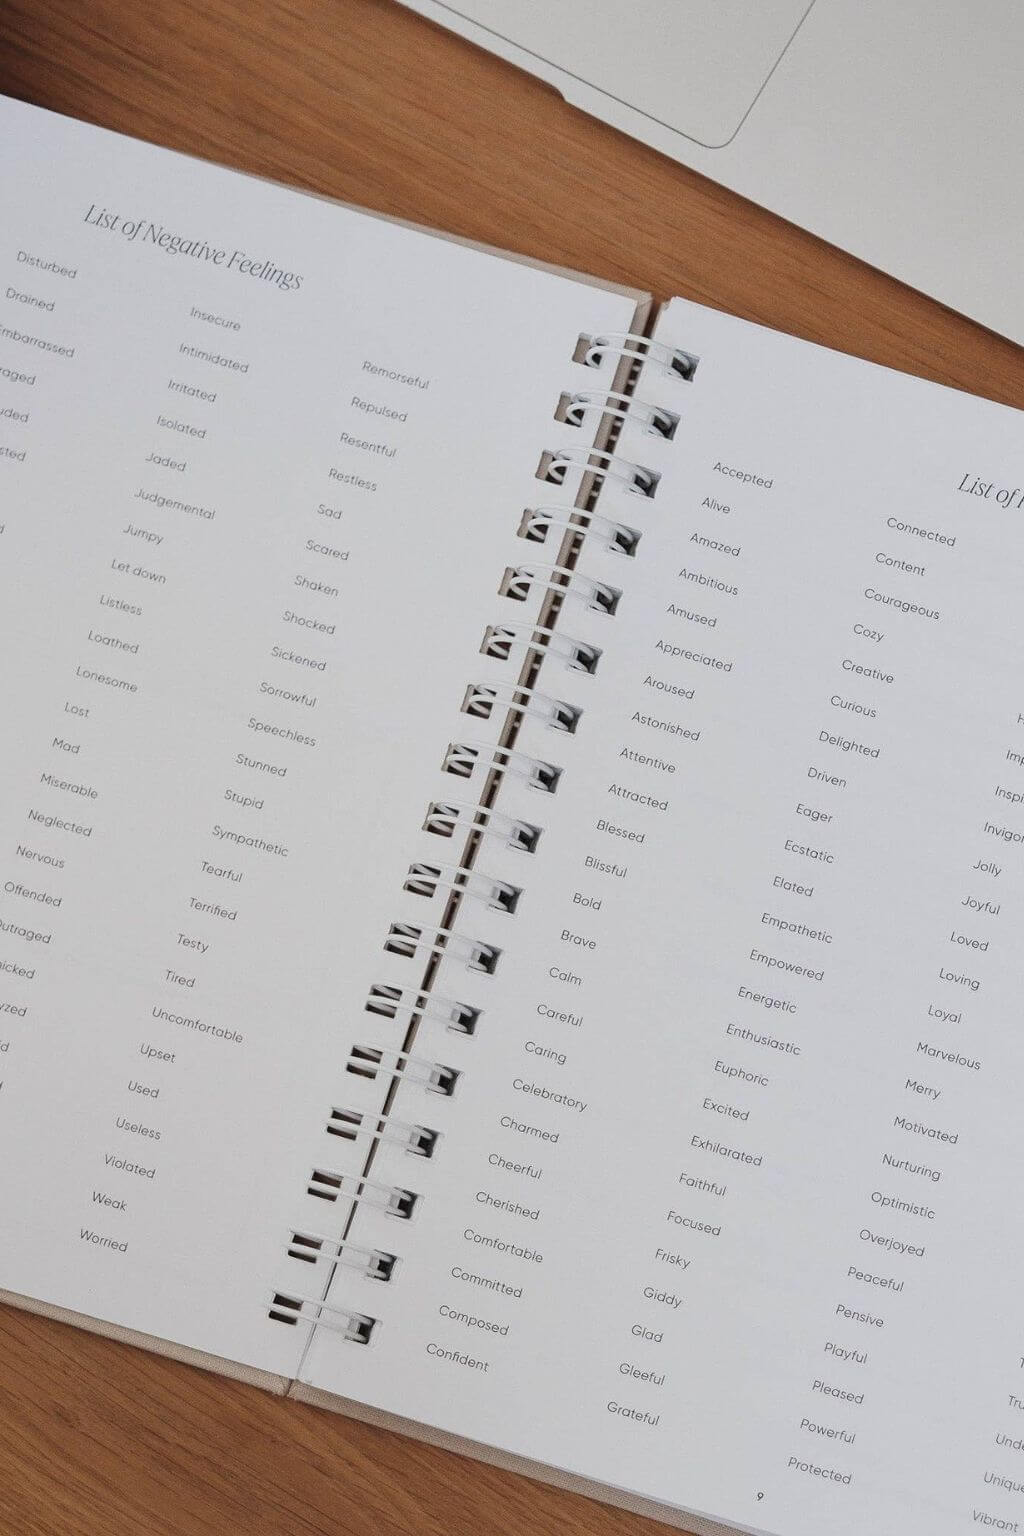 List of Negative Feelings
Disturbed
Drained
Insecure
Intimidated
Irritated
Isolated
Jaded
Judgemental
Jumpy
Let down
Listless
Loathed
Lonesome
Lost
Mad
Miserable
Neglected
Nervous
Offended
Remorseful
Repulsed
Resentful
Restless
Sad
Scared
Shaken
Shocked
Sickened
Sorrowful
Speechless
Stunned
Stupid
Sympathetic
Tearful
Terrified
Testy
Tired
Uncomfortable
Upset
Used
Useless
Violated
Weak
Worried
List of
Accepted
Alive
Amazed
Ambitious
Amused
Appreciated
Aroused
Astonished
Attentive
Attracted
Blessed
Blissful
Bold
Brave
Calm
Careful
Caring
Celebratory
Charmed
Cheerful
Cherished
Comfortable
Committed
Composed
Confident
Connected
Content
Courageous
Cozy
Creative
Curious
Delighted
Driven
Eager
Ecstatic
Elated
Empathetic
Empowered
Energetic
Enthusiastic
Euphoric
Excited
Exhilarated
Faithful
Focused
Frisky
Giddy
Glad
Gleeful
Grateful
Jolly
Joyful
Loved
Loving
Loyal
Marvelous
Merry
Motivated
Nurturing
Optimistic
Overjoyed
Peaceful
Pensive
Playful
Pleased
Powerful
Protected
Vibrant
9